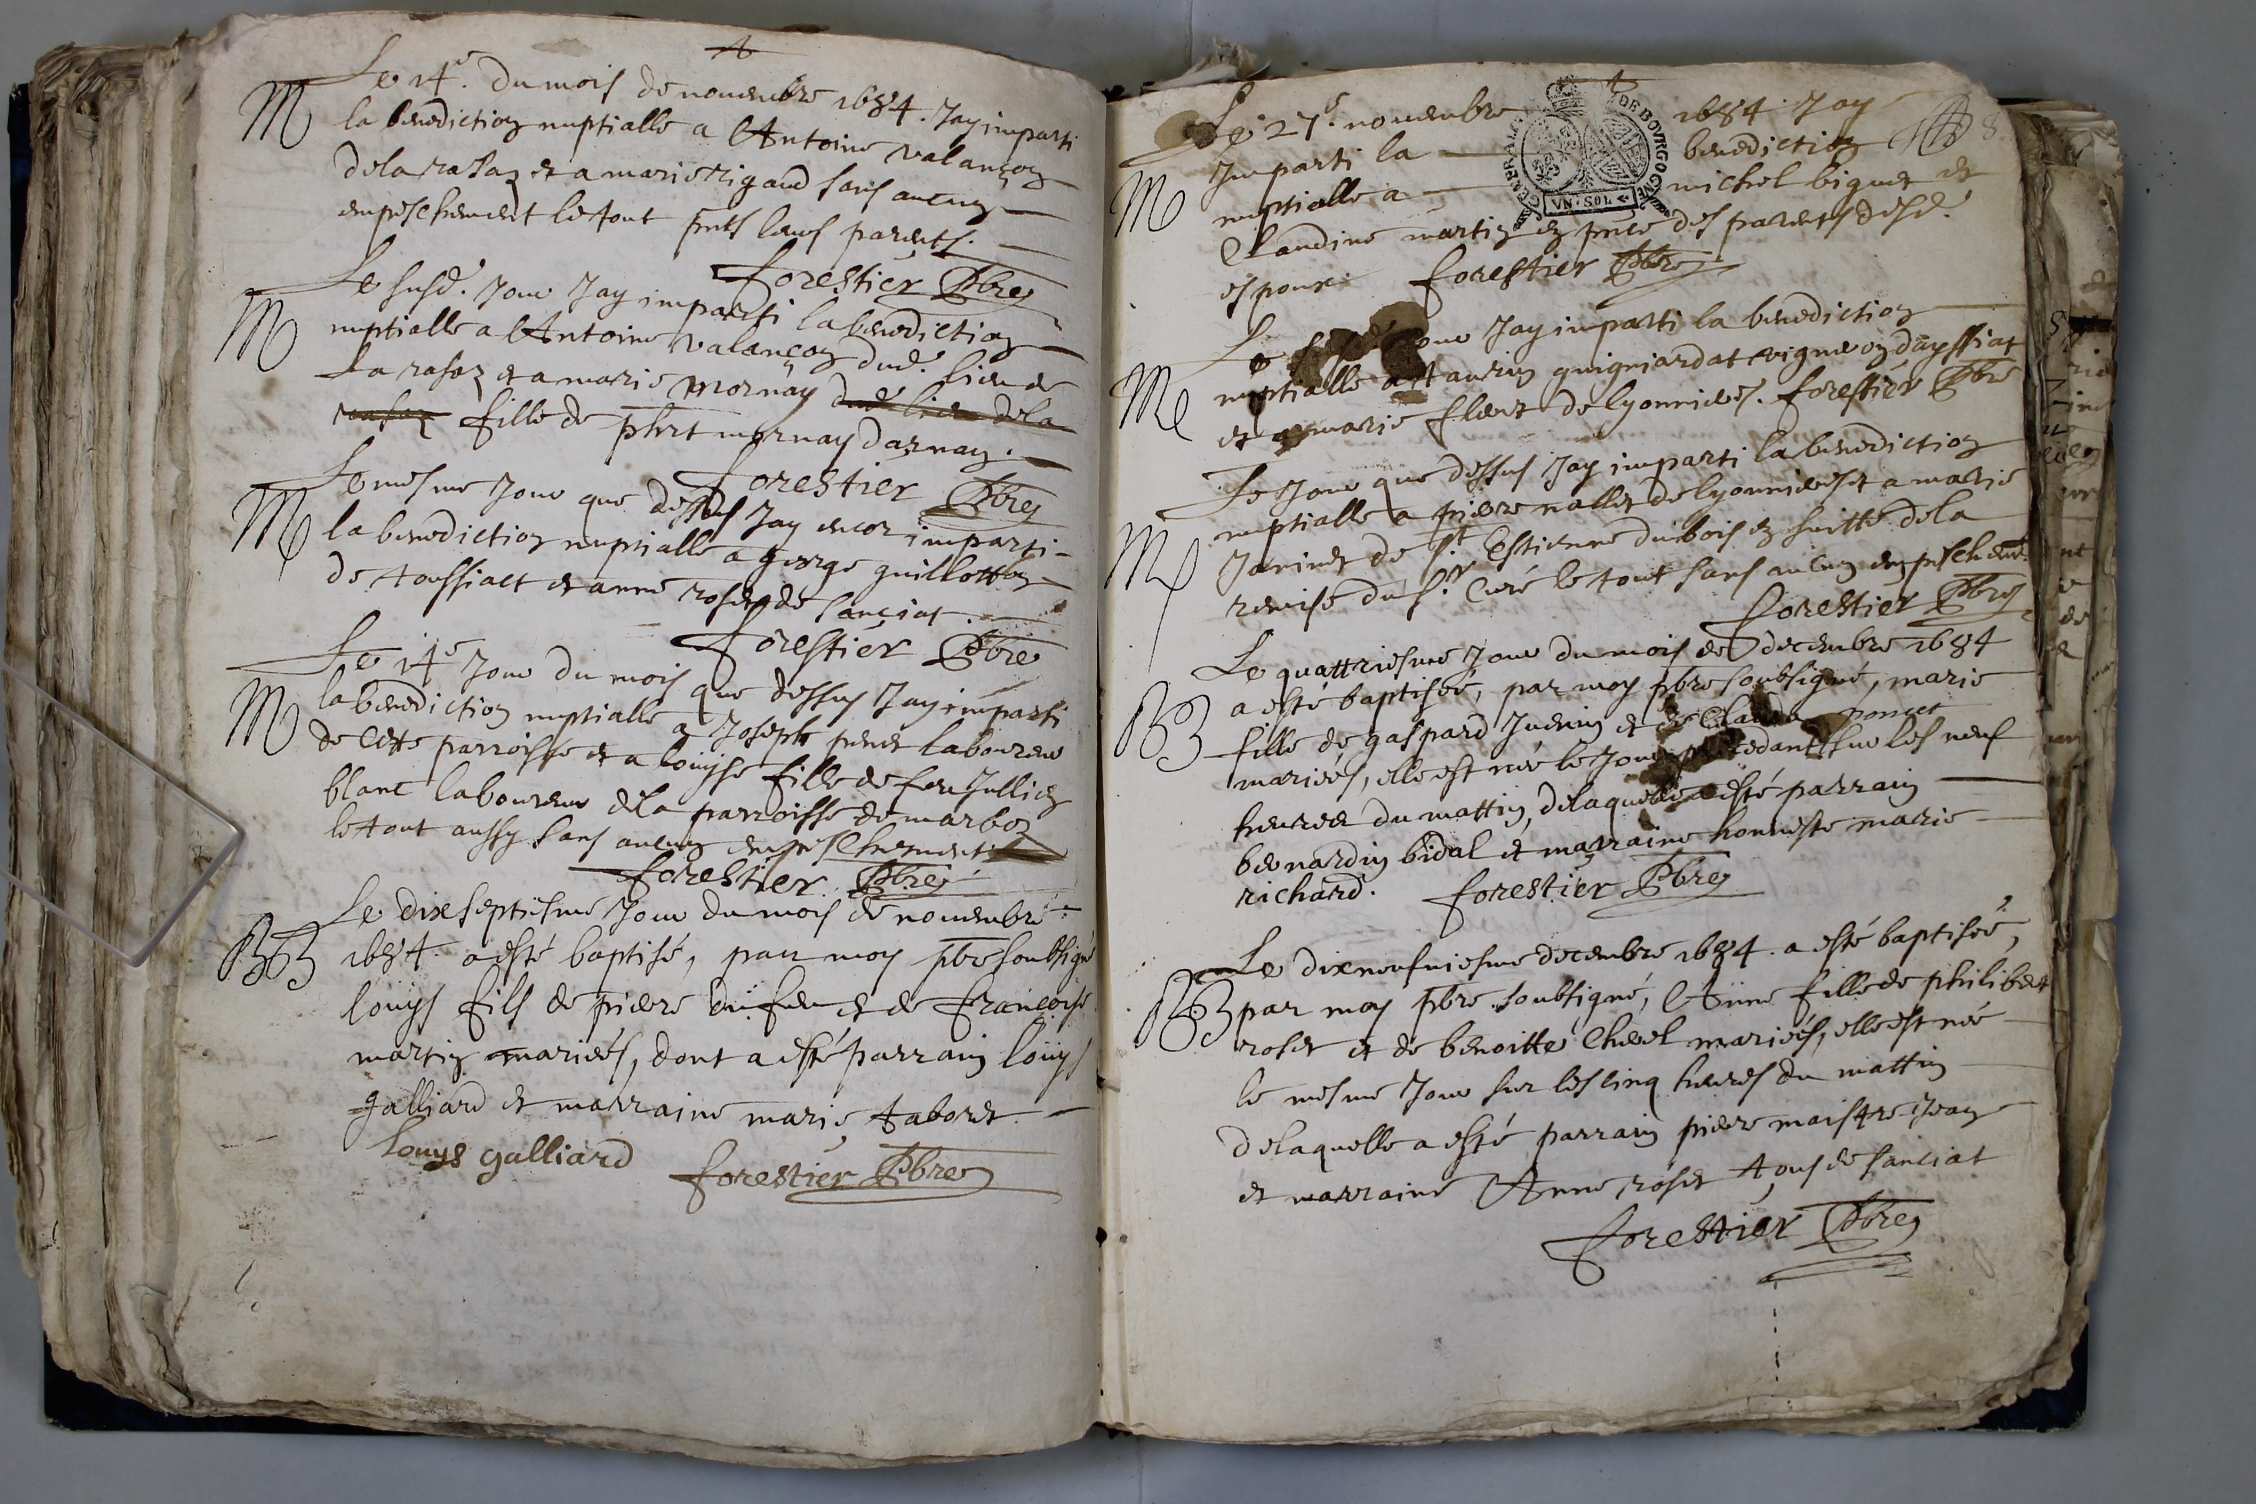 M Le 14e. du mois de nouembre 1684. Jay imparti
la benediction nuptialle a Anthoine valançon
de la rasaz et a marie rigaud sans aucun
empeschement le tout pnts leurs parents.
forestier Pbre
M Le susd. Jour Jay imparti la benediction
nuptialle a Anthoine valançon dud. lieu de
la rasaz et a marie mornay dud. lieu dela
rasaz fille de phrt mornay darnay.
forestier Pbre
M Le mesme Jour que dessus Jay encor imparti
la benediction nuptialle a george guillotton
de toussiact et anne roset de sanciat.
forestier Pbre
M Le 14e Jour du mois que dessus Jay imparti
la benediction nuptialle a Joseph laboureur
de cette parroisse et a louyse fille de feu Jullien
blanc laboureur dela parroisse de marboz
le tout aussy sans aucun empeschement
forestier Pbre
B Le dixseptiesme Jour du mois de nouembre
1684. a esté baptisé, par moy pbre soubsigné
louys fils de pierre dufour et de francoise
martin mariées, dont a esté parrain louys
galliard et marraine marie taboret.
Louys galliard forestier Pbre
GENERALITE DE BOVRGOGNE
VN SOL
Le 27e. nouembre 1684. Jay
M Imparti la benediction
nuptialle a michel biguet et
Claudine martin en pnce des parents desd.
espoux forestier Pbre
Le Jour Jay imparti la benediction
M nuptialle a taurin guigniardat vigneron dayssiat
et a marie fleur de lyonnieres. forestier Pbre
Le Jour que dessus Jay imparti la benediction
nuptialle a pierre nallet de lyonnieres et a marie
M Janinet de St. Estienne du bois en suitte dela
remise du sr. Curé le tout sans aucun empeschemt.
forestier Pbre
Le quattriesme Jour du mois de decembre 1684
B a esté baptiseé, par moy pbre soubsigné, marie
fille de gaspard Juenin et de Clauda poncet
mariées, elle est née le Jour precedant sur les neuf
heures du mattin, delaquelle a esté parrain
bernardin bidal et marraine honneste marie
richard. forestier Pbre
Le dixneufuiesme decembre 1684. a esté baptiseé,
B par moy pbre soubsigné, Anne fille de philibert
roset et de benoitte Cheuel mariées, elle est née
le mesme Jour sur les cinq heures du mattin
delaquelle a esté parrain pierre maistre Jean
et marraine Anne roset tous de sanciat
forestier Pbre